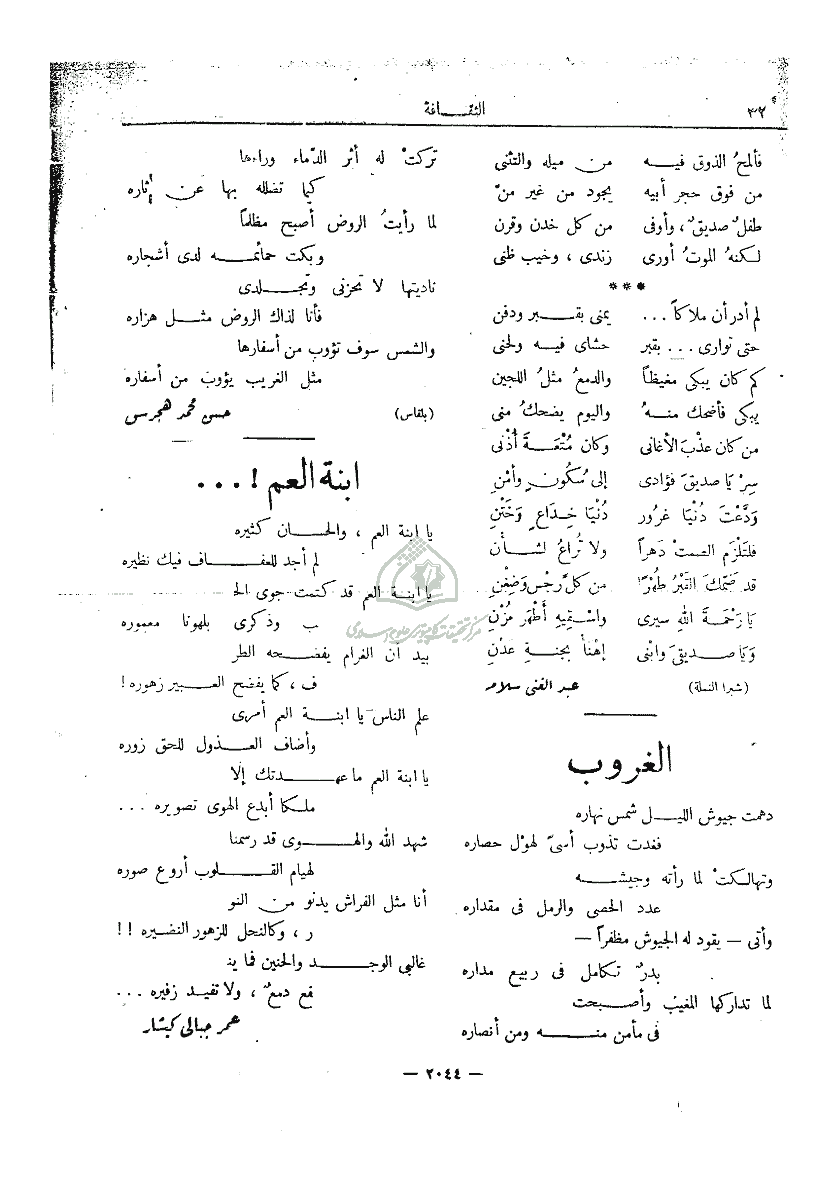 ٣٢
الثقــافة
فألمحُ الذوق فيــه من ميله والتثنى
من فوق حجر أبيه يجود من غير منّ
طفلٌ صديقٌ، وأوفى من كل خدن وقرن
لكنهُ الموتُ أورى زندى، وخيب ظنى
***
لم أدر أن ملاكاً ... يمنى بقــبر ودفن
حتى توارى ... بقبر حشاى فيــه ولحنى
كم كان يبكى مغيظاً والدمع مثلُ اللجين
يبكى فأضحك منــهُ واليوم يضحكُ منى
من كان عذْبَ الأغانى وكان مُتْعَــةَ أُذْنى
سِرْ يَا صديقَ فؤادى إلى سُكُونٍ وأمْنِ
وَدَّعْتَ دُنْيَا غرُور دُنْيَا خِدَاعٍ وَخَتْنِ
فلتَلْزَم الصمتْ دَهراً ولا تُراعْ لشــأن
قد ضَمَّكَ القَبْرُ طُهْراً من كلِّ رِجْسٍ وَضِغْنِ
يَا رَحْمَةَ اللهِ سيرى واسْقِيهِ أَطْهَرَ مُزْنِ
وَيَا صديقَ وابْنى إهْنأ بجَنــةِ عدْنِ
(شبرا النملة) عبد الغنى سلامه
الغروب
دهمت جيوش الليــل شمس نهاره
فغدت تذوب أسىً لهوْل حصاره
وتهالكتْ لما رأته وجيشــه
عدد الحصى والرمل فى مقداره
وأتى — يقود له الجيوش مظفراً —
بدرٌ تكامل فى ربيع مداره
لما تداركها المغيب وأصــبحت
فى مأمن منــه ومن أنصاره
تركتْ له أثر الدّماء وراءها
كيما تضلله بها عن آثاره
لما رأيتُ الروض أصبح مظلماً
وبكت حمائمــه لدى أشجاره
ناديتها لا تحزنى وتجــلدى
فأنا لذاك الروض مثــل هزاره
والشمس سوف تؤوب من أسفارها
مثل الغريب يؤوبَ من أسفاره
(بلقاس) حسن محمد هجرس
ابنة العم! ...
يا ابنة العم، والحســان كثيره
لم أجد للعفــاف فيك نظيره
يا ابنــة العم قد كتمت جوى الحـ
ب وذكرى بلهوتا معموره
بيد أن الغرام يفضحه الطر
ف، كما يفضح العــبير زهوره!
علم الناس يا ابنــة العم أمرى
وأضاف العــذول للحق زوره
يا ابنة العم ما عهــدتك إلا
ملــكا أبدع الهوى تصويره ...
شهد الله والهــوى قد رسمنا
لهيام القــلوب أروع صوره
أنا مثل الفراش يدنو من النو
ر، وكالنحل للزهور النضيره!!
غالبى الوجــد والحنين فما يـنـ
فع دمعٌ، ولا تفيــد زفيره ...
عمر جبالى كيتار
— ٢٠٤٤ —